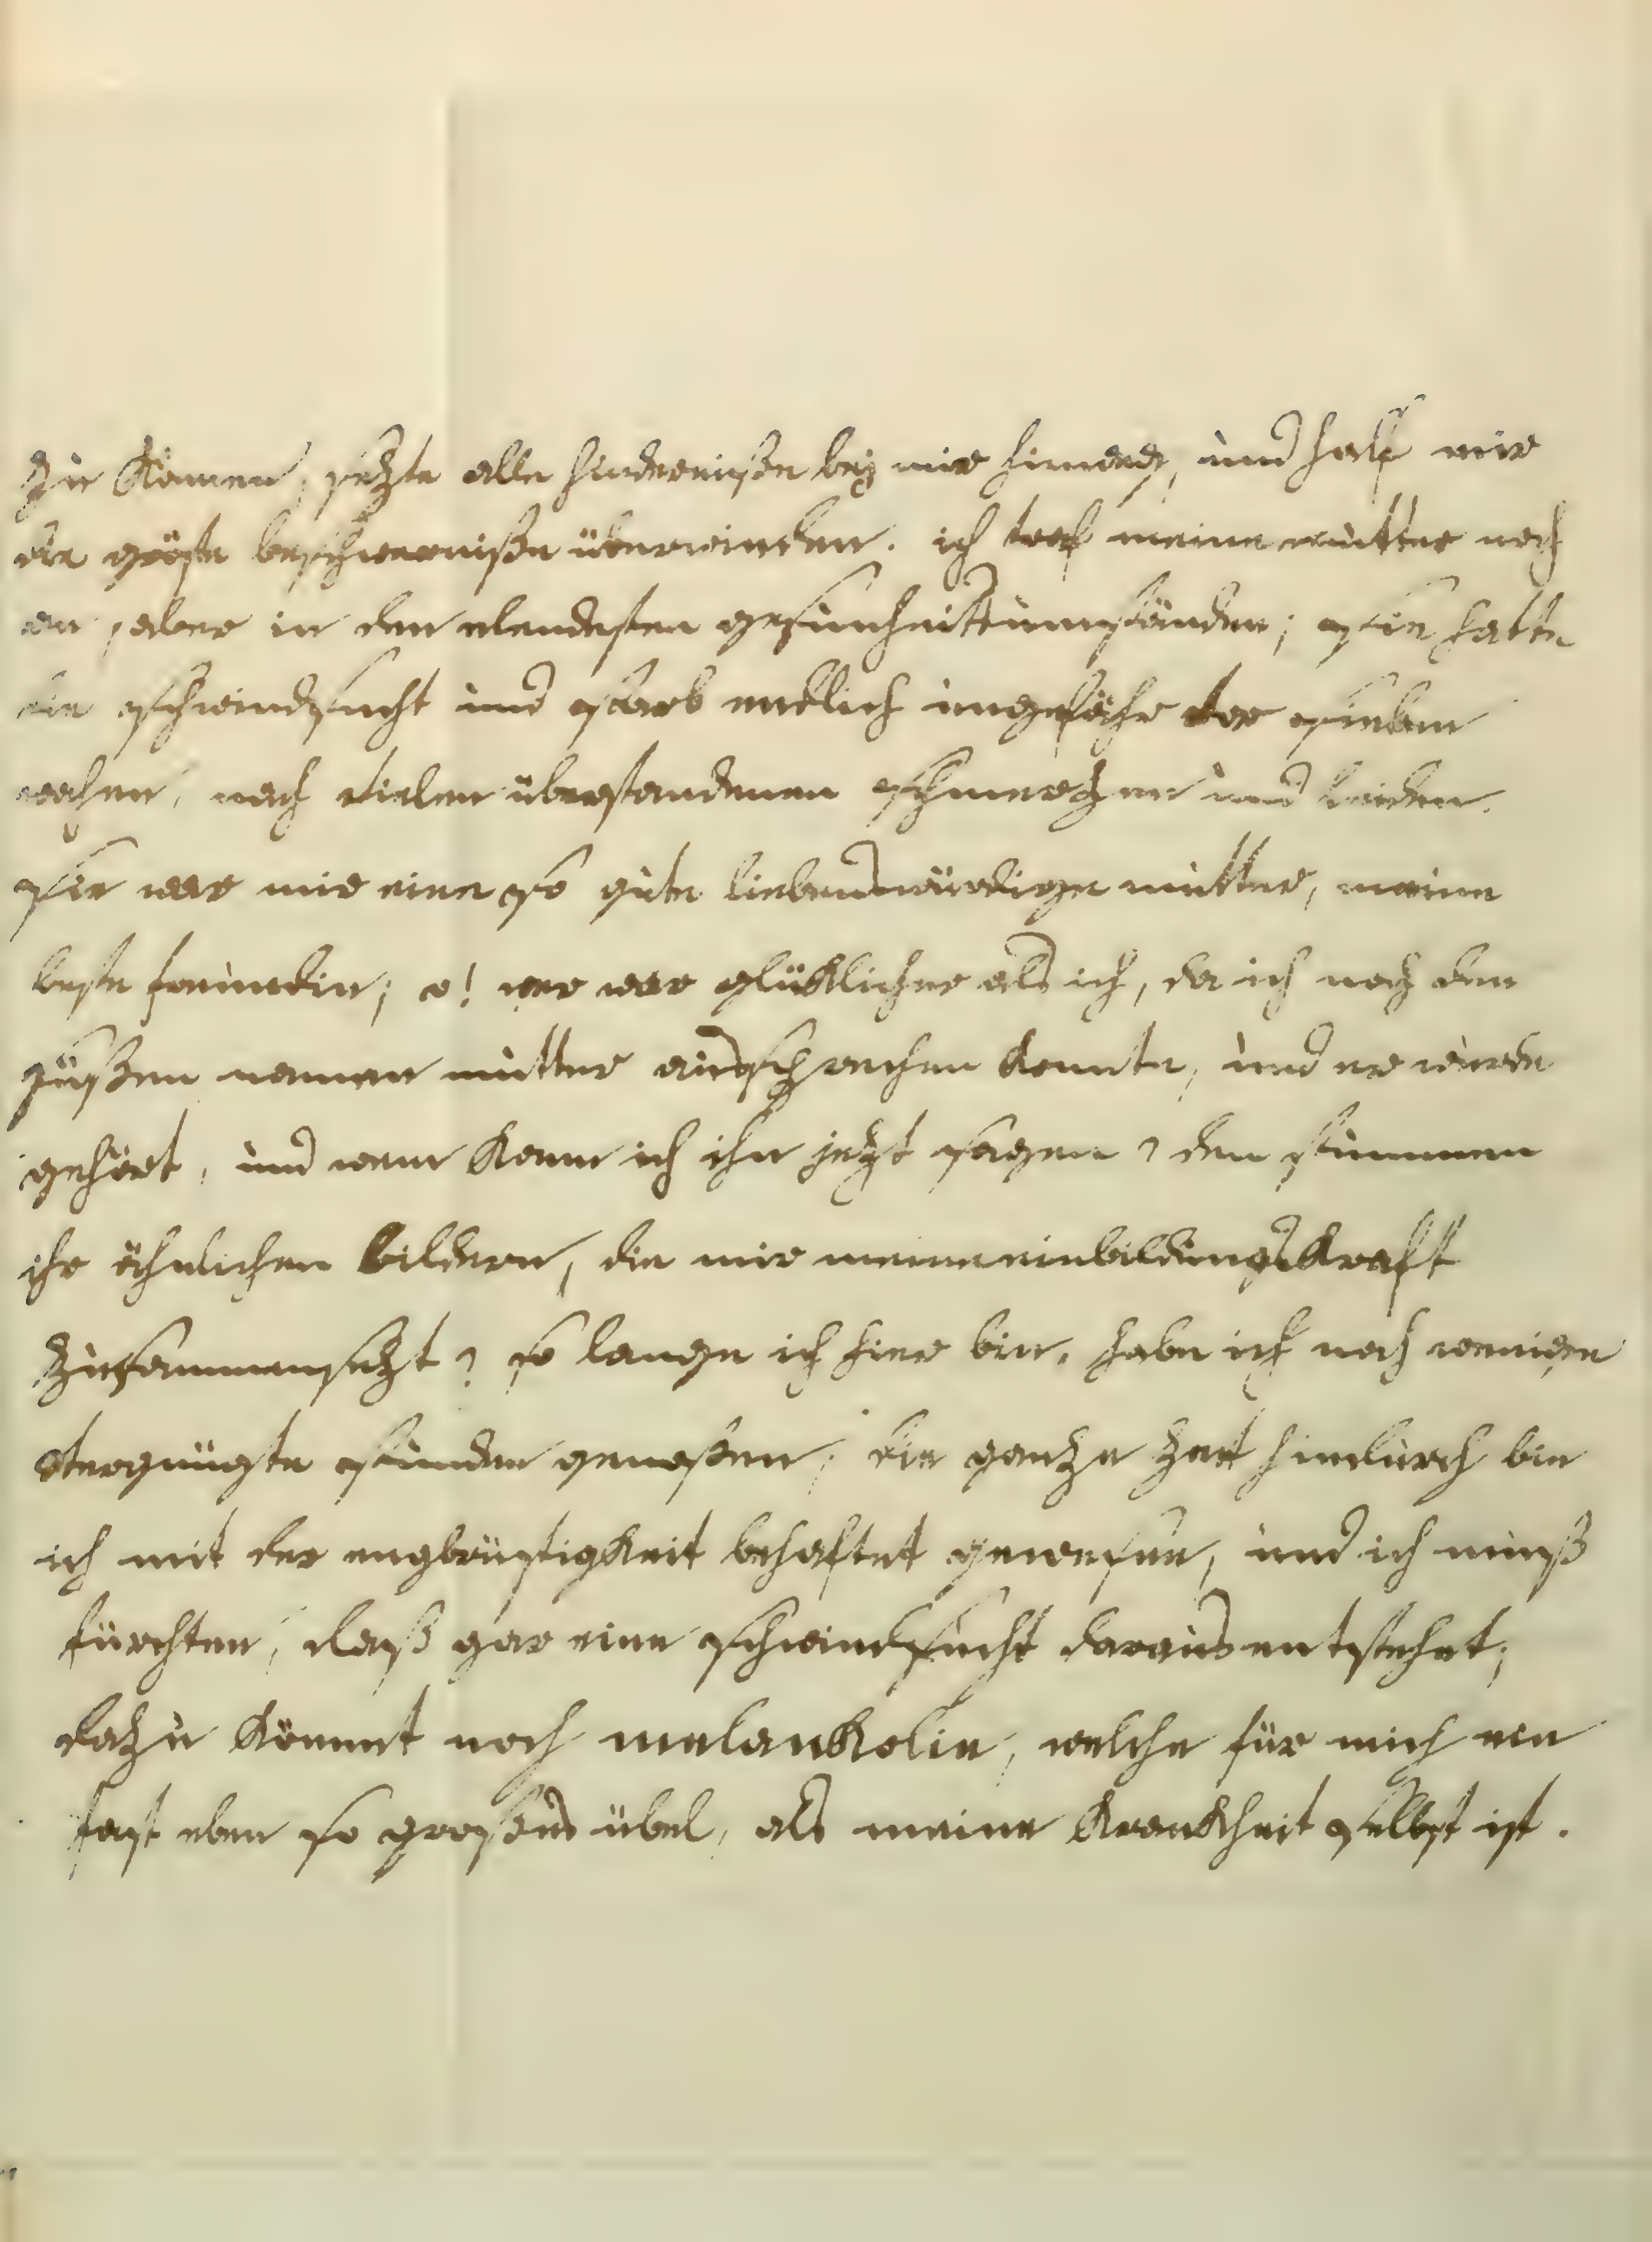 zu können, sezte alle hinderniße bey mir hinweg, und half mir
die gröste beschwerniße überwinden. ich traf meine mutter noch
an, aber in den elendesten gesundheitsumständen; sie hatte
die schwindsucht und starb endlich ungefähr vor sieben
wochen, nach vielen überstandenen schmerzen und leiden.
sie war mir eine so gute liebenswürdige mutter, meine
beste freundin; o! wer war glüklicher als ich, da ich noch den
süßen namen mutter aussprechen konnte, und er wurde
gehört, und wem kann ich ihn jezt sagen? den stummen
ihr ähnlichen bildern, die mir meine einbildungskraft
zusammensezt? so lange ich hier bin, habe ich noch wenige
vergnügte stunden genoßen; die ganze zeit hindurch bin
ich mit der engbrüstigkeit behaftet gewesen, und ich muß
fürchten, daß gar eine schwindsucht daraus entstehet;
dazu kömmt noch melankolie, welche für mich ein
fast eben so großes übel, als meine krankheit selbst ist.